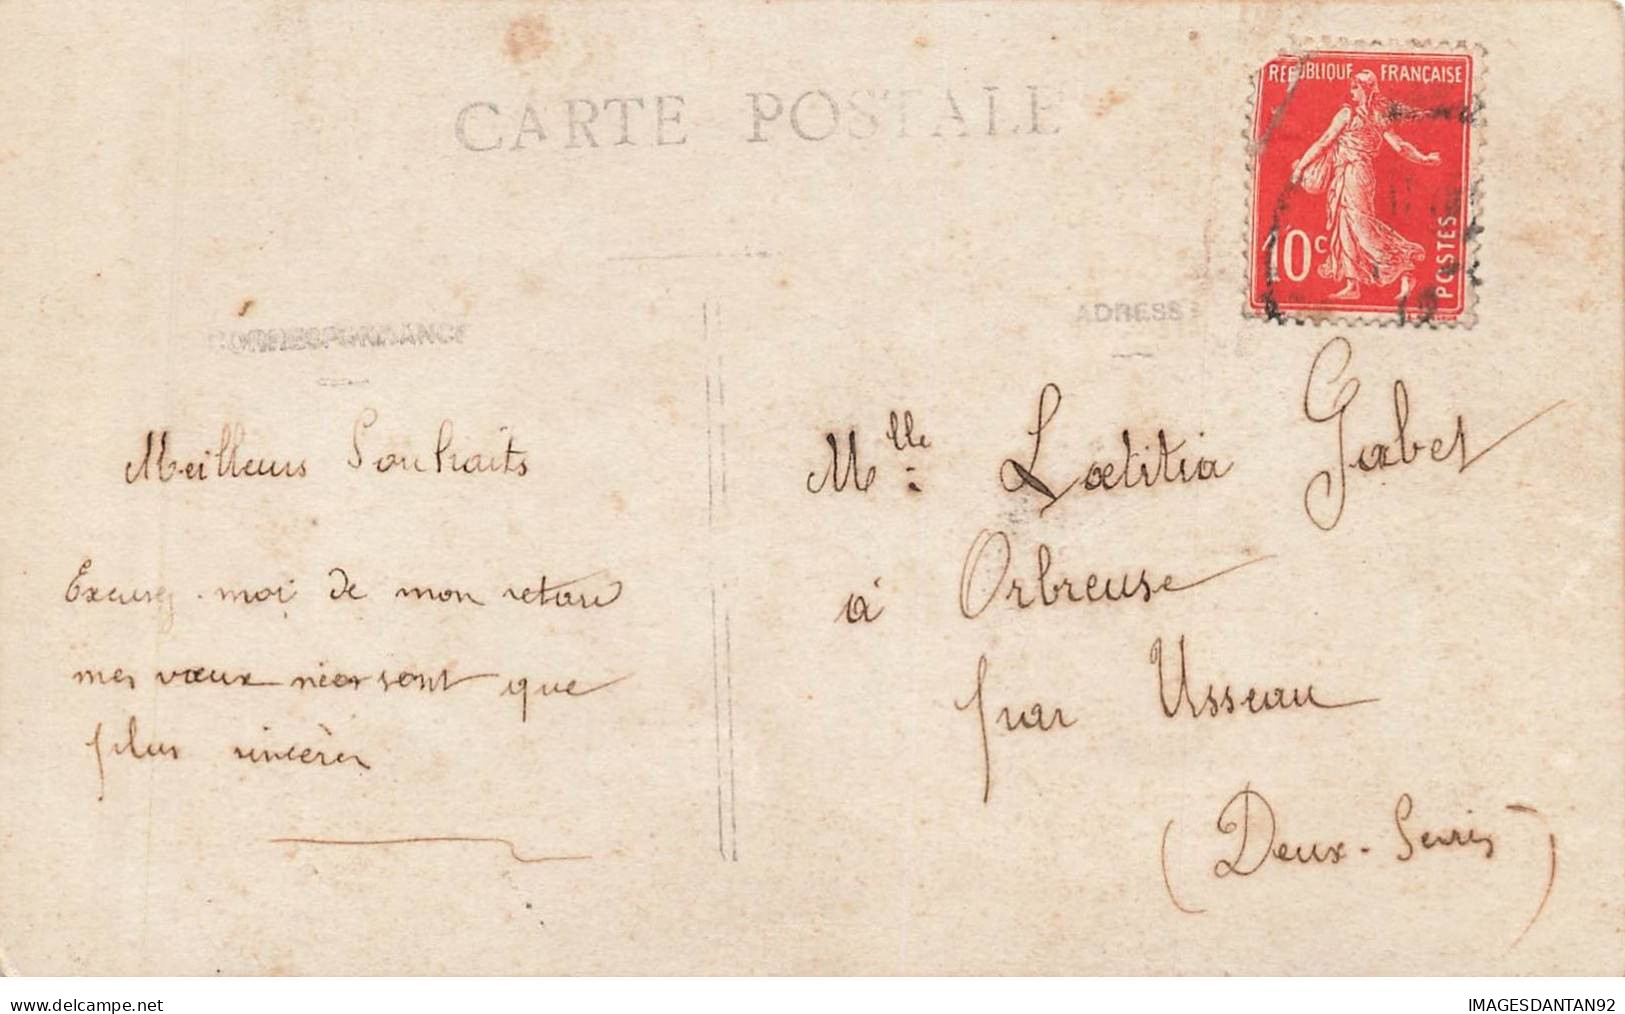 CARTE POSTALE
RÉPUBLIQUE FRANÇAISE
10c
POSTES
CORRESPONDANCE
ADRESSE
Meilleurs Souhaits
Excusez-moi de mon retard
mes vœux n'en sont que
plus sincères
Mlle Lætitia Gabet
à Orbreuse
par Usseau
(Deux-Sèvres)
www.delcampe.net
IMAGESDANTAN92